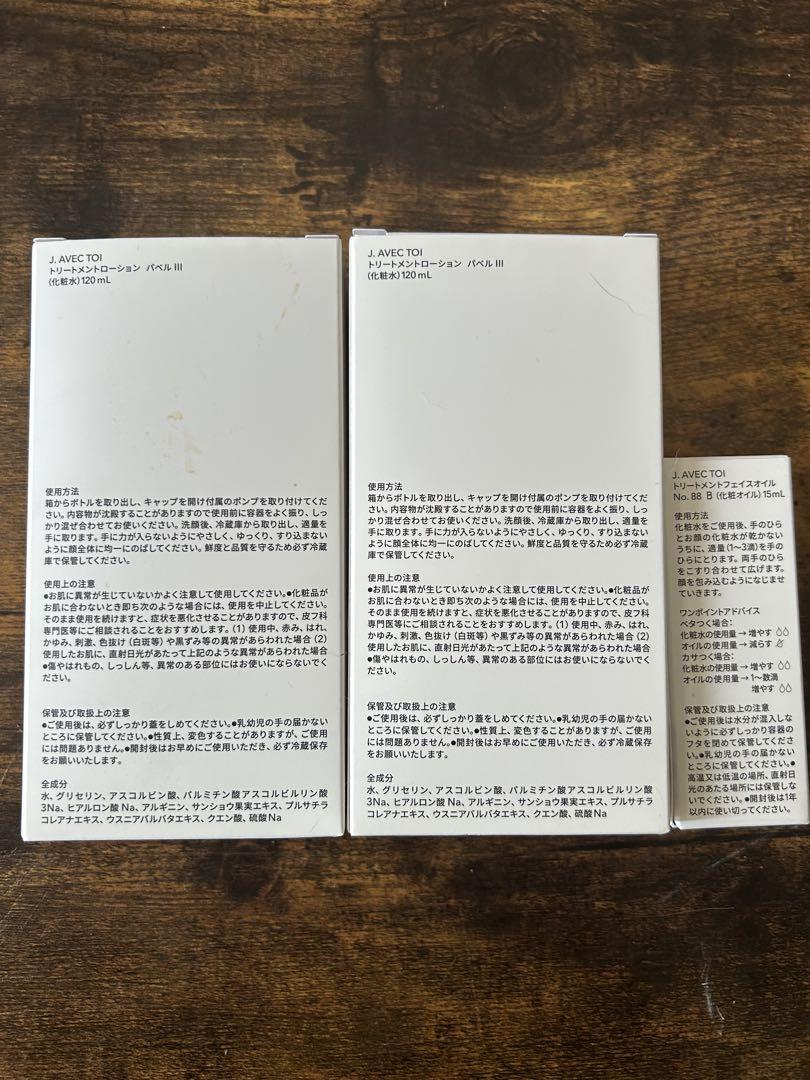 J. AVEC TOI
トリートメントローション パベル III
(化粧水)120 mL
使用方法
箱からボトルを取り出し、キャップを開け付属のポンプを取り付けてくだ
さい。内容物が沈殿することがありますので使用前に容器をよく振り、しっ
かり混ぜ合わせてお使いください。洗顔後、冷蔵庫から取り出し、適量を
手に取ります。手に力が入らないようにやさしく、ゆっくり、すり込まない
ように顔全体に均一にのばしてください。鮮度と品質を守るため必ず冷蔵
庫で保管してください。
使用上の注意
●お肌に異常が生じていないかよく注意して使用してください。●化粧品が
お肌に合わないとき即ち次のような場合には、使用を中止してください。
そのまま使用を続けますと、症状を悪化させることがありますので、皮フ科
専門医等にご相談されることをおすすめします。(1) 使用中、赤み、はれ、
かゆみ、刺激、色抜け (白斑等) や黒ずみ等の異常があらわれた場合 (2)
使用したお肌に、直射日光があたって上記のような異常があらわれた場合
●傷やはれもの、しっしん等、異常のある部位にはお使いにならないでく
ださい。
保管及び取扱上の注意
●ご使用後は、必ずしっかり蓋をしめてください。●乳幼児の手の届かない
ところに保管してください。●性質上、変色することがありますが、ご使用
には問題ありません。●開封後はお早めにご使用いただき、必ず冷蔵保存
をお願いいたします。
全成分
水、グリセリン、アスコルビン酸、パルミチン酸アスコルビルリン酸
3Na、ヒアルロン酸 Na、アルギニン、サンショウ果実エキス、プルサチラ
コレアナエキス、ウスニアバルバタエキス、クエン酸、硫酸Na
J. AVEC TOI
トリートメントローション パベル III
(化粧水)120 mL
使用方法
箱からボトルを取り出し、キャップを開け付属のポンプを取り付けてくだ
さい。内容物が沈殿することがありますので使用前に容器をよく振り、しっ
かり混ぜ合わせてお使いください。洗顔後、冷蔵庫から取り出し、適量を
手に取ります。手に力が入らないようにやさしく、ゆっくり、すり込まない
ように顔全体に均一にのばしてください。鮮度と品質を守るため必ず冷蔵
庫で保管してください。
使用上の注意
●お肌に異常が生じていないかよく注意して使用してください。●化粧品が
お肌に合わないとき即ち次のような場合には、使用を中止してください。
そのまま使用を続けますと、症状を悪化させることがありますので、皮フ科
専門医等にご相談されることをおすすめします。(1) 使用中、赤み、はれ、
かゆみ、刺激、色抜け (白斑等) や黒ずみ等の異常があらわれた場合 (2)
使用したお肌に、直射日光があたって上記のような異常があらわれた場合
●傷やはれもの、しっしん等、異常のある部位にはお使いにならないでく
ださい。
保管及び取扱上の注意
●ご使用後は、必ずしっかり蓋をしめてください。●乳幼児の手の届かない
ところに保管してください。●性質上、変色することがありますが、ご使用
には問題ありません。●開封後はお早めにご使用いただき、必ず冷蔵保存
をお願いいたします。
全成分
水、グリセリン、アスコルビン酸、パルミチン酸アスコルビルリン酸
3Na、ヒアルロン酸 Na、アルギニン、サンショウ果実エキス、プルサチラ
コレアナエキス、ウスニアバルバタエキス、クエン酸、硫酸Na
J. AVEC TOI
トリートメントフェイスオイル
No. 88 B (化粧オイル) 15mL
使用方法
化粧水をご使用後、手のひら
とお顔の化粧水が乾かない
うちに、適量 (1〜3滴) を手の
ひらにとります。両手のひら
をこすり合わせて広げます。
顔を包み込むようになじませ
ていきます。
ワンポイントアドバイス
ベタつく場合:
化粧水の使用量 → 増やす
オイルの使用量 → 減らす
カサつく場合:
化粧水の使用量 → 増やす
オイルの使用量 → 1〜数滴
増やす
保管及び取扱上の注意
●ご使用後は水分が混入しな
いように必ずしっかり容器の
フタを閉めて保管してくださ
い。●乳幼児の手の届かない
ところに保管してください。●
高温又は低温の場所、直射日
光のあたる場所には保管しな
いでください。●開封後は1年
以内に使い切ってください。